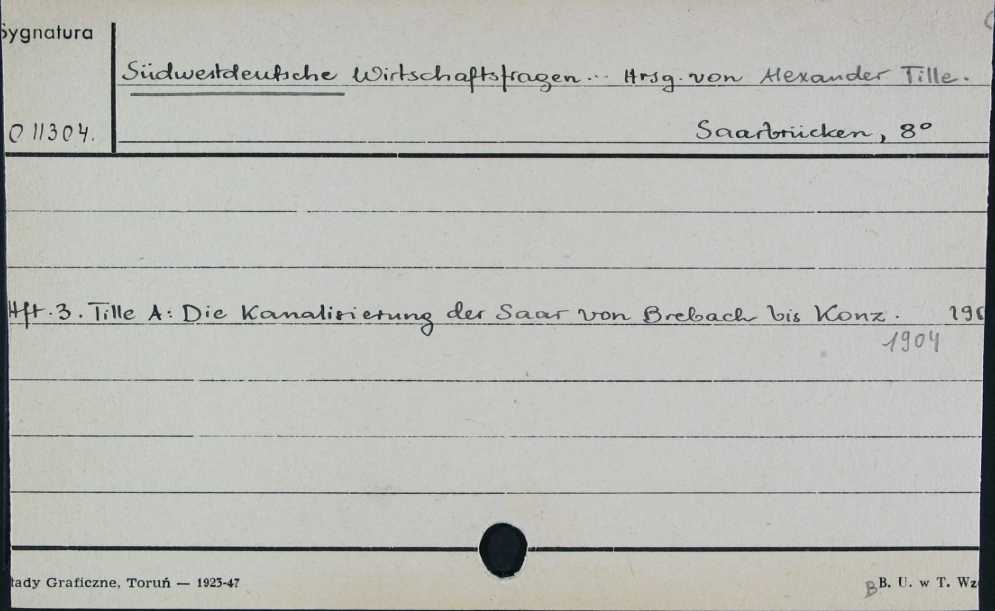 Sygnatura
Südwestdeutsche Wirtschaftsfragen... Hrsg. von Alexander Tille.
O 11304.
Saarbrücken, 8°
Hft. 3. Tille A: Die Kanalisierung der Saar von Brebach bis Konz. 190
1904
ady Graficzne, Toruń — 1923-47
B B. U. w T. Wz